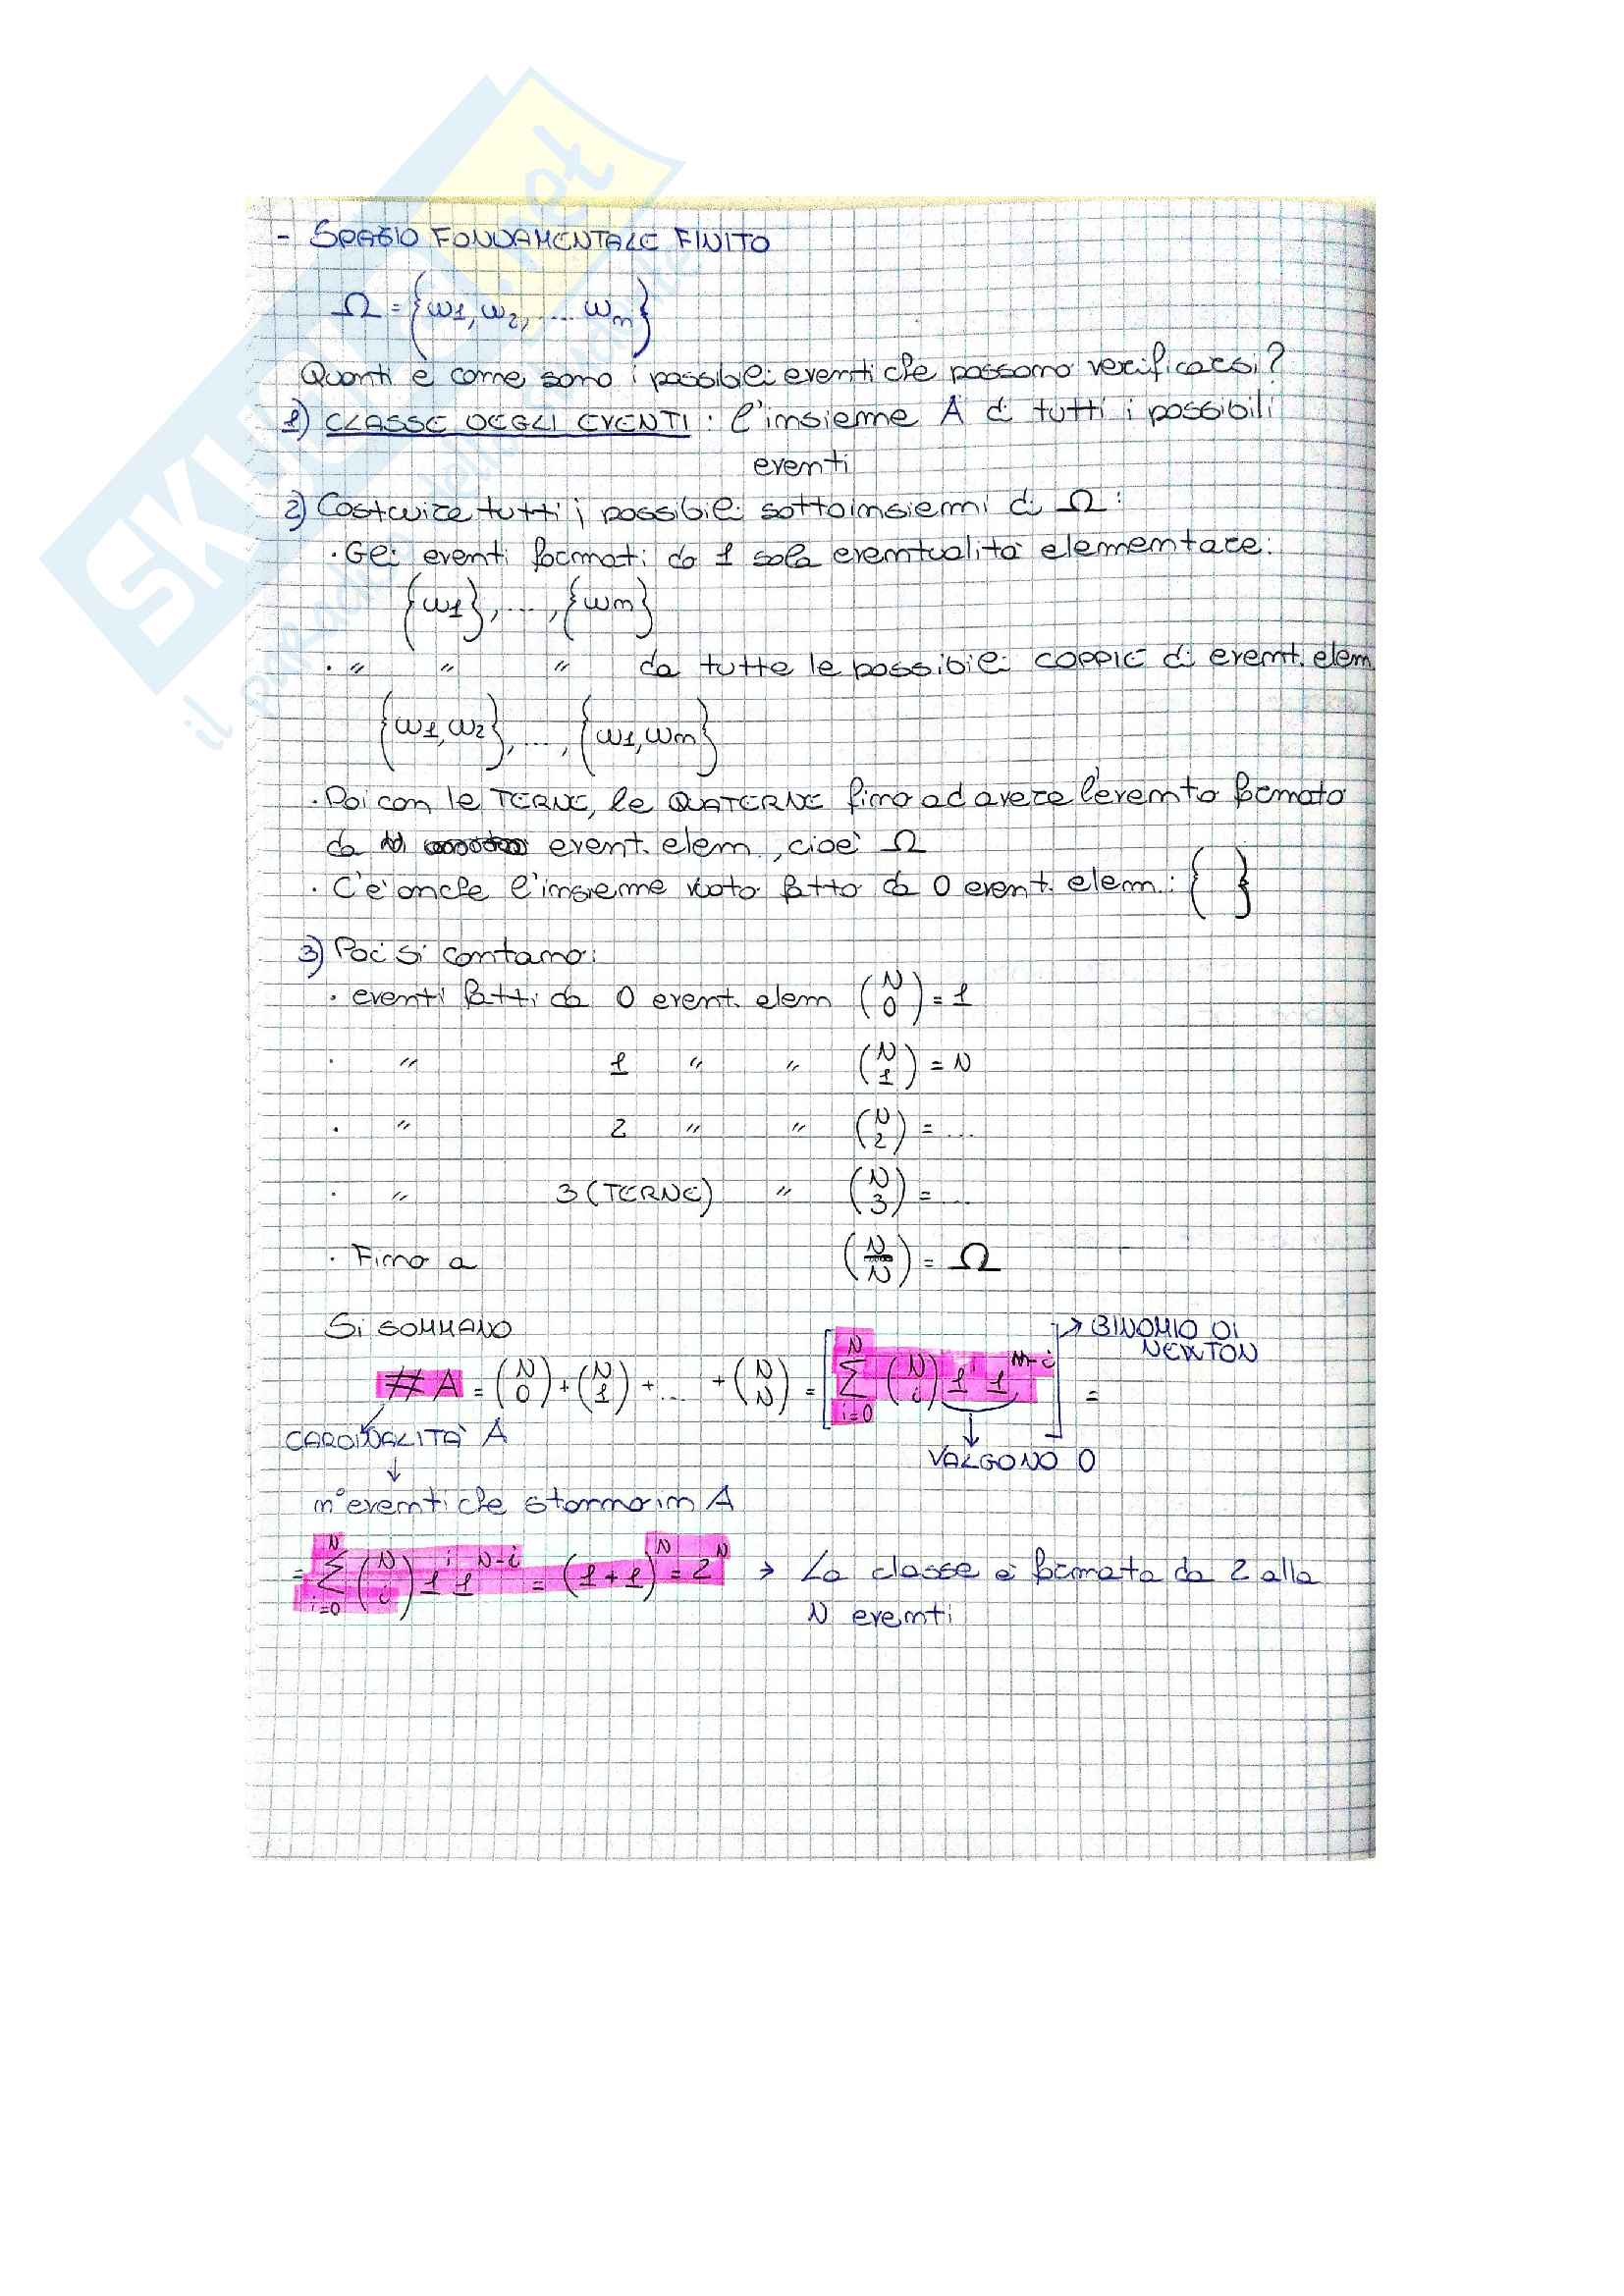 - SPAZIO FONDAMENTALE FINITO
Ω = {ω1, ω2, .... ωn}
Quanti e come sono i possibili eventi che possono verificarsi?
1) CLASSE DEGLI EVENTI : l'insieme A di tutti i possibili
eventi
2) Costruire tutti i possibili sottoinsiemi di Ω :
· Gli eventi formati da 1 sola eventualità elementare:
{ω1}, ..., {ωn}
· " " " da tutte le possibili COPPIE di event. elem
{ω1, ω2}, ..., {ω1, ωn}
· Poi con le TERNE, le QUATERNE fino ad avere l'evento formato
da N event. elem., cioè Ω
· C'è anche l'insieme vuoto fatto da 0 event. elem.: { }
3) Poi si contano:
· eventi fatti da 0 event. elem (N 0) = 1
· " 1 " " (N 1) = N
· " 2 " " (N 2) = ...
· " 3 (TERNE) " (N 3) = ...
· Fino a (N N) = Ω
Si SOMMANO
→ BINOMIO DI
NEWTON
# A = (N 0) + (N 1) + ... + (N N) = [∑ᴺ i=0 (N i) 1ⁱ 1ⁿ⁻ⁱ] =
CARDINALITÀ A
VALGONO 0
↓
n° eventi che stanno in A
= ∑ᴺ i=0 (N i) 1ⁱ 1ᴺ⁻ⁱ = (1+1)ᴺ = 2ᴺ → La classe è formata da 2 alla
N eventi
SKUOLA.net
il paradiso dello studente